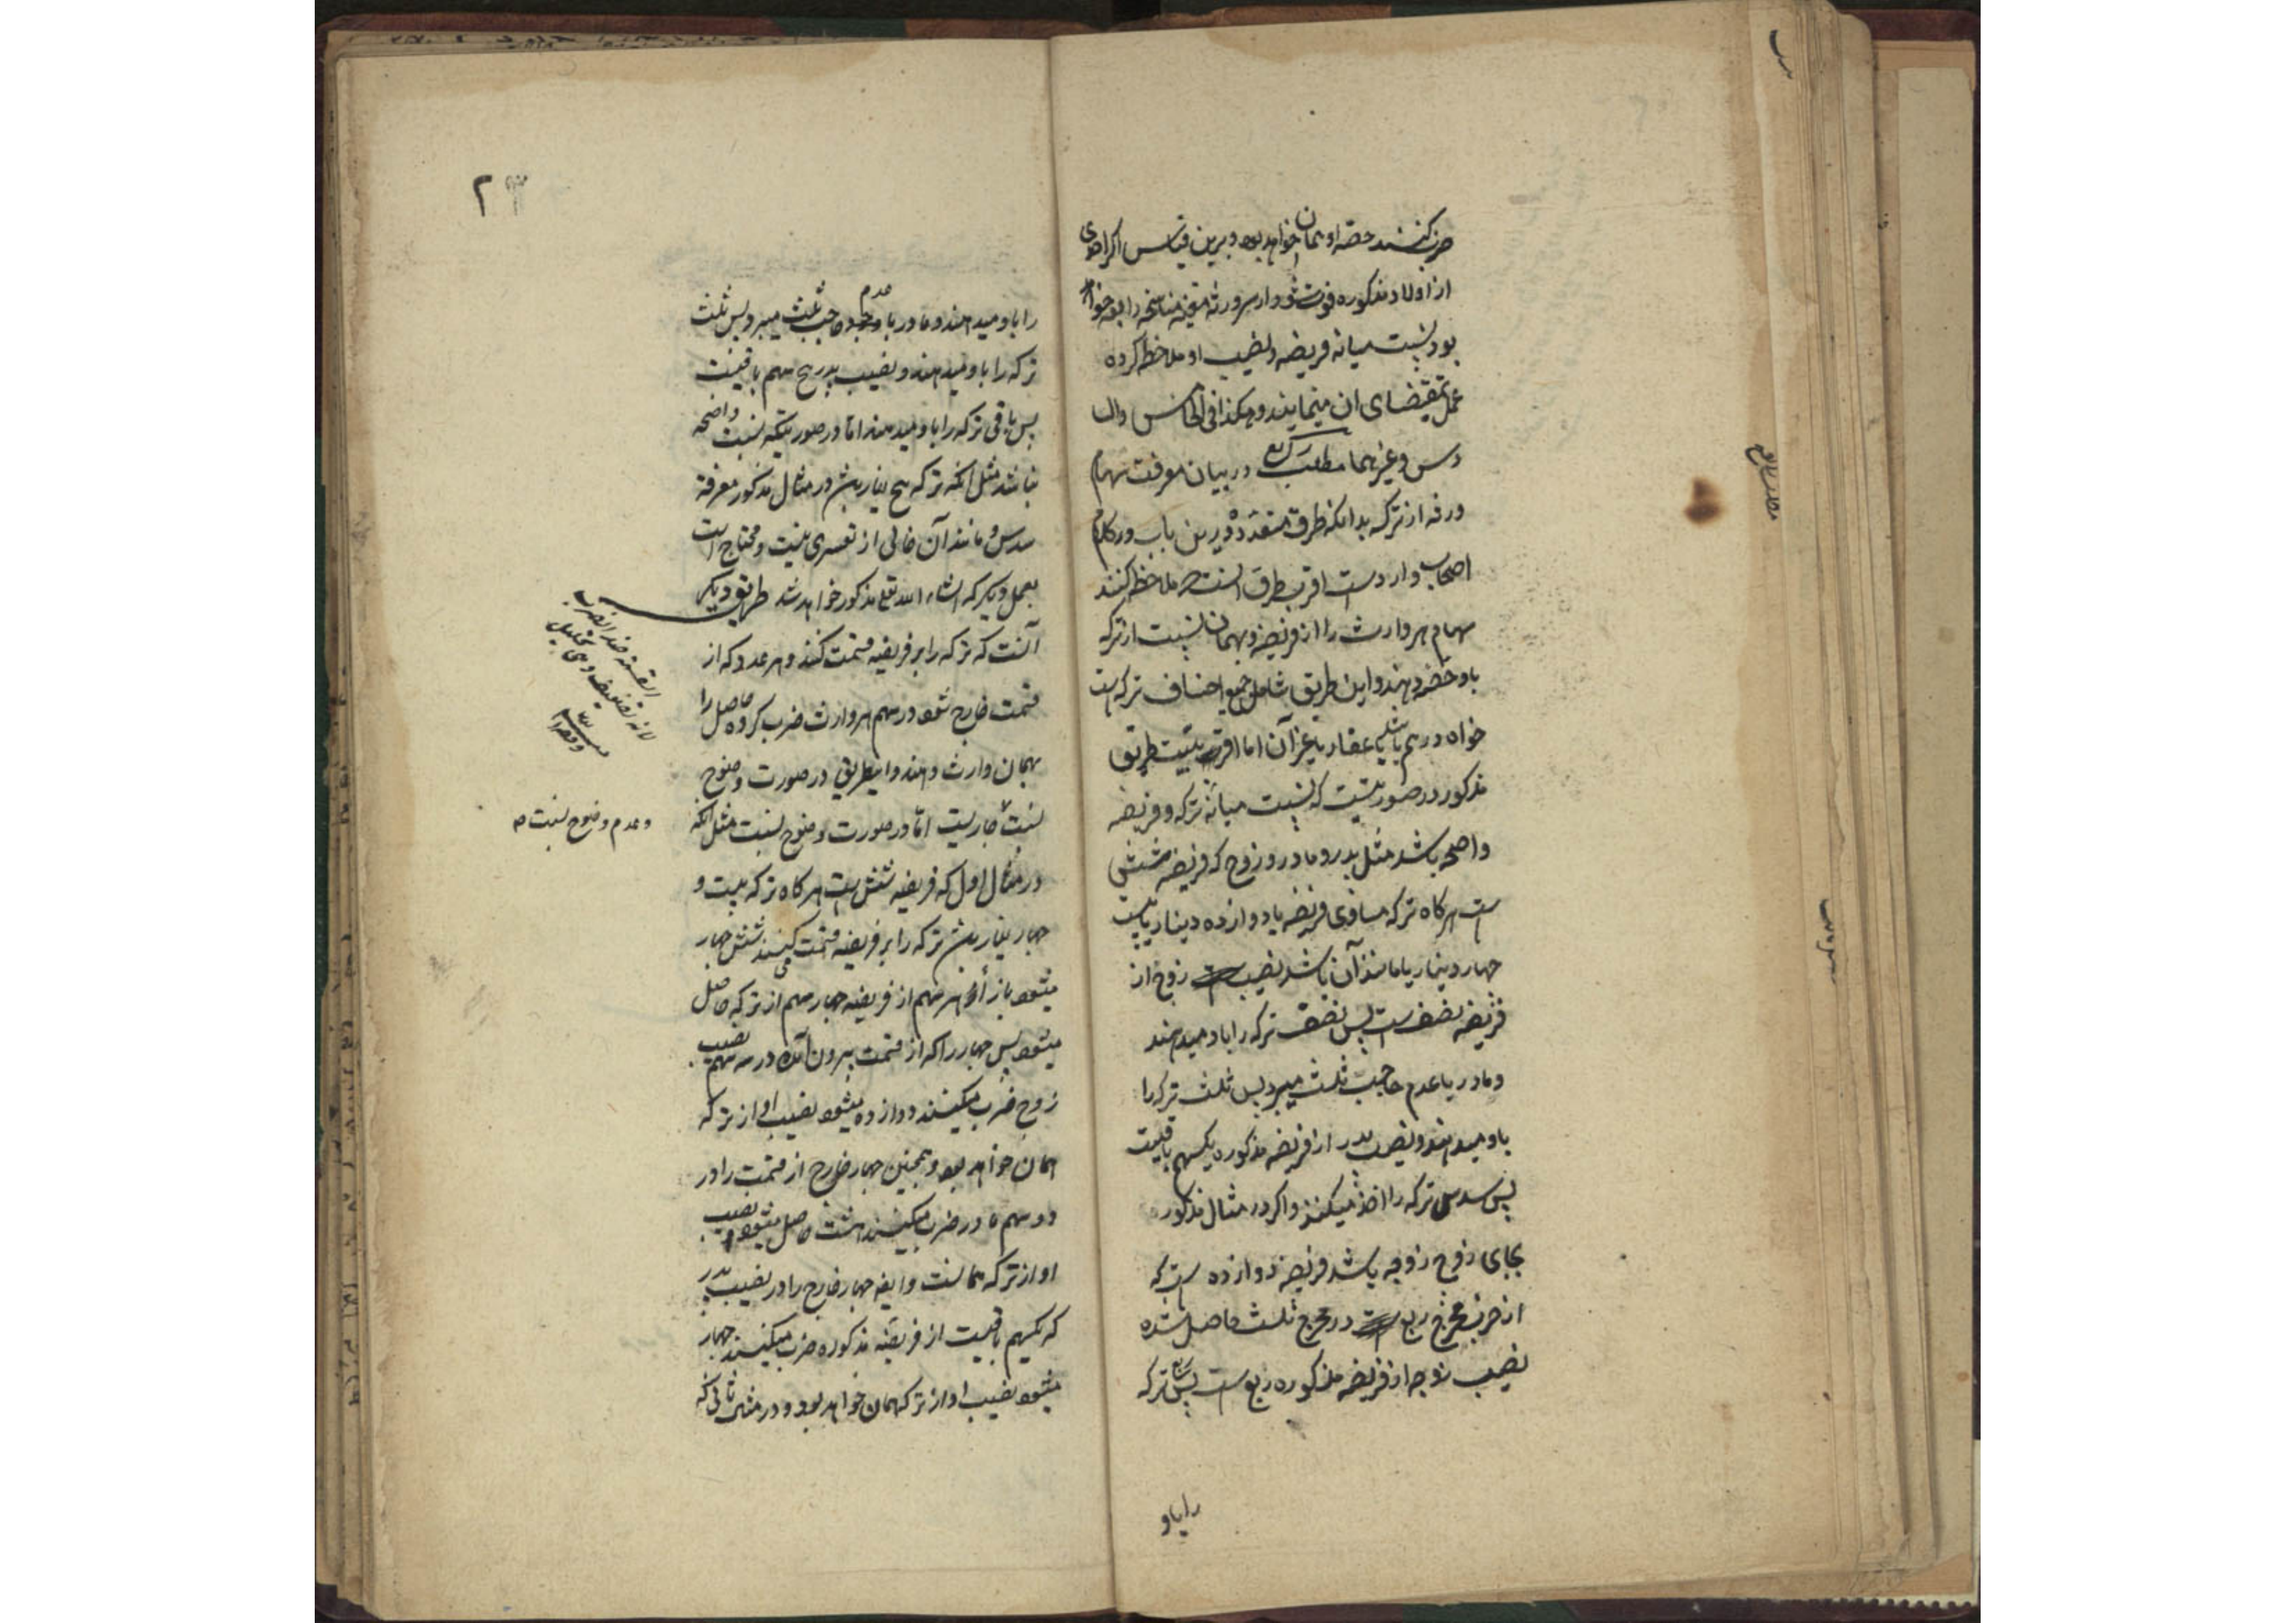 ضرب کنند حصه او همان خواهد بود و برین قیاس اگر احدی
از اولاد مذکوره فوت شود از سر ورثه
بود نسبت میانه فریضه و نصیب او ملاحظه کرده
عمل بمقتضای ان مینمایند و هکذا فی الخامس والسا
دس و غیرهما مطلب رابع در بیان معرفت سهام
ورثه از ترکه بدانکه طرق متعدده درین باب در کلام
اصحاب وارد است اقرب طرق انست که ملاحظه کنند
سهام هر وارث را از فریضه و بهمان نسبت از ترکه
باو حصه دهند و این طریق شامل جمیع اصناف ترکه است
خواه درهم باشد یا عقار یا غیر آن اما اقربیت طریق
مذکور در صورتیست که نسبت میانه ترکه و فریضه
واضحه باشد مثل پدر و مادر و زوج که فریضه شش
است هرگاه ترکه مساوی فریضه یا دوازده دینار یا بیست
چهار دینار یا مانند آن باشد نصیب زوج از
فریضه نصف است پس نصف ترکه را باو میدهند
و مادر با عدم حاجب ثلث میبرد پس ثلث ترکه را
باو میدهند و نصیب پدر از فریضه مذکوره یکسهم باقیست
پس سدس ترکه را اخذ میکند و اگر در مثال مذکور
بجای زوج زوجه باشد فریضه دوازده است که
از ضرب مخرج ربع در مخرج ثلث حاصل شده
نصیب زوجه از فریضه مذکوره ربع است پس ربع ترکه
راباو
۲۳
را باو میدهند و مادر با عدم وجود حاجب ثلث میبرد پس ثلث
ترکه را باو میدهند و نصیب پدر پنج سهم باقیست
پس باقی ترکه را باو میدهند اما در صورتیکه نسبت واضحه
نباشد مثل آنکه ترکه پنج دینار باشد در مثال مذکور معرفة
سدس و مانند آن خالی از تعسری نیست و محتاج است
بعمل دیگر که انشاء الله تعالی مذکور خواهد شد طریق دیگر
آنست که ترکه را بر فریضه قسمت کنند و هر عدد که از
قسمت خارج شود در سهم هر وارث ضرب کرده حاصل را
بهمان وارث دهند و اینطریق در صورت وضوح
نسبت جاریست اما در صورت وضوح نسبت مثل آنکه
در مثال اول که فریضه شش است هرگاه ترکه بیست و
چهار دینار باشد ترکه را بر فریضه قسمت میکنند شش چهار
میشود بازاء هر سهم از فریضه چهار سهم از ترکه حاصل
میشود پس چهار را که از قسمت بیرون آمده در سه سهم نصیب
زوج ضرب میکنند دوازده میشود نصیب او از ترکه
همان خواهد بود و همچنین چهار خارج از قسمت را در
دو سهم مادر ضرب میکنند هشت حاصل میشود نصیب
او از ترکه همانست و ایضه چهار خارج را در نصیب پدر
که یکسهم باقیست از فریضه مذکوره ضرب میکنند چهار
میشود نصیب او از ترکه همان خواهد بود و در مثال ثانی که
القسمة ضد الضرب
لانه تضعیف و هی تحلیل
و عدم وضوح نسبت صه